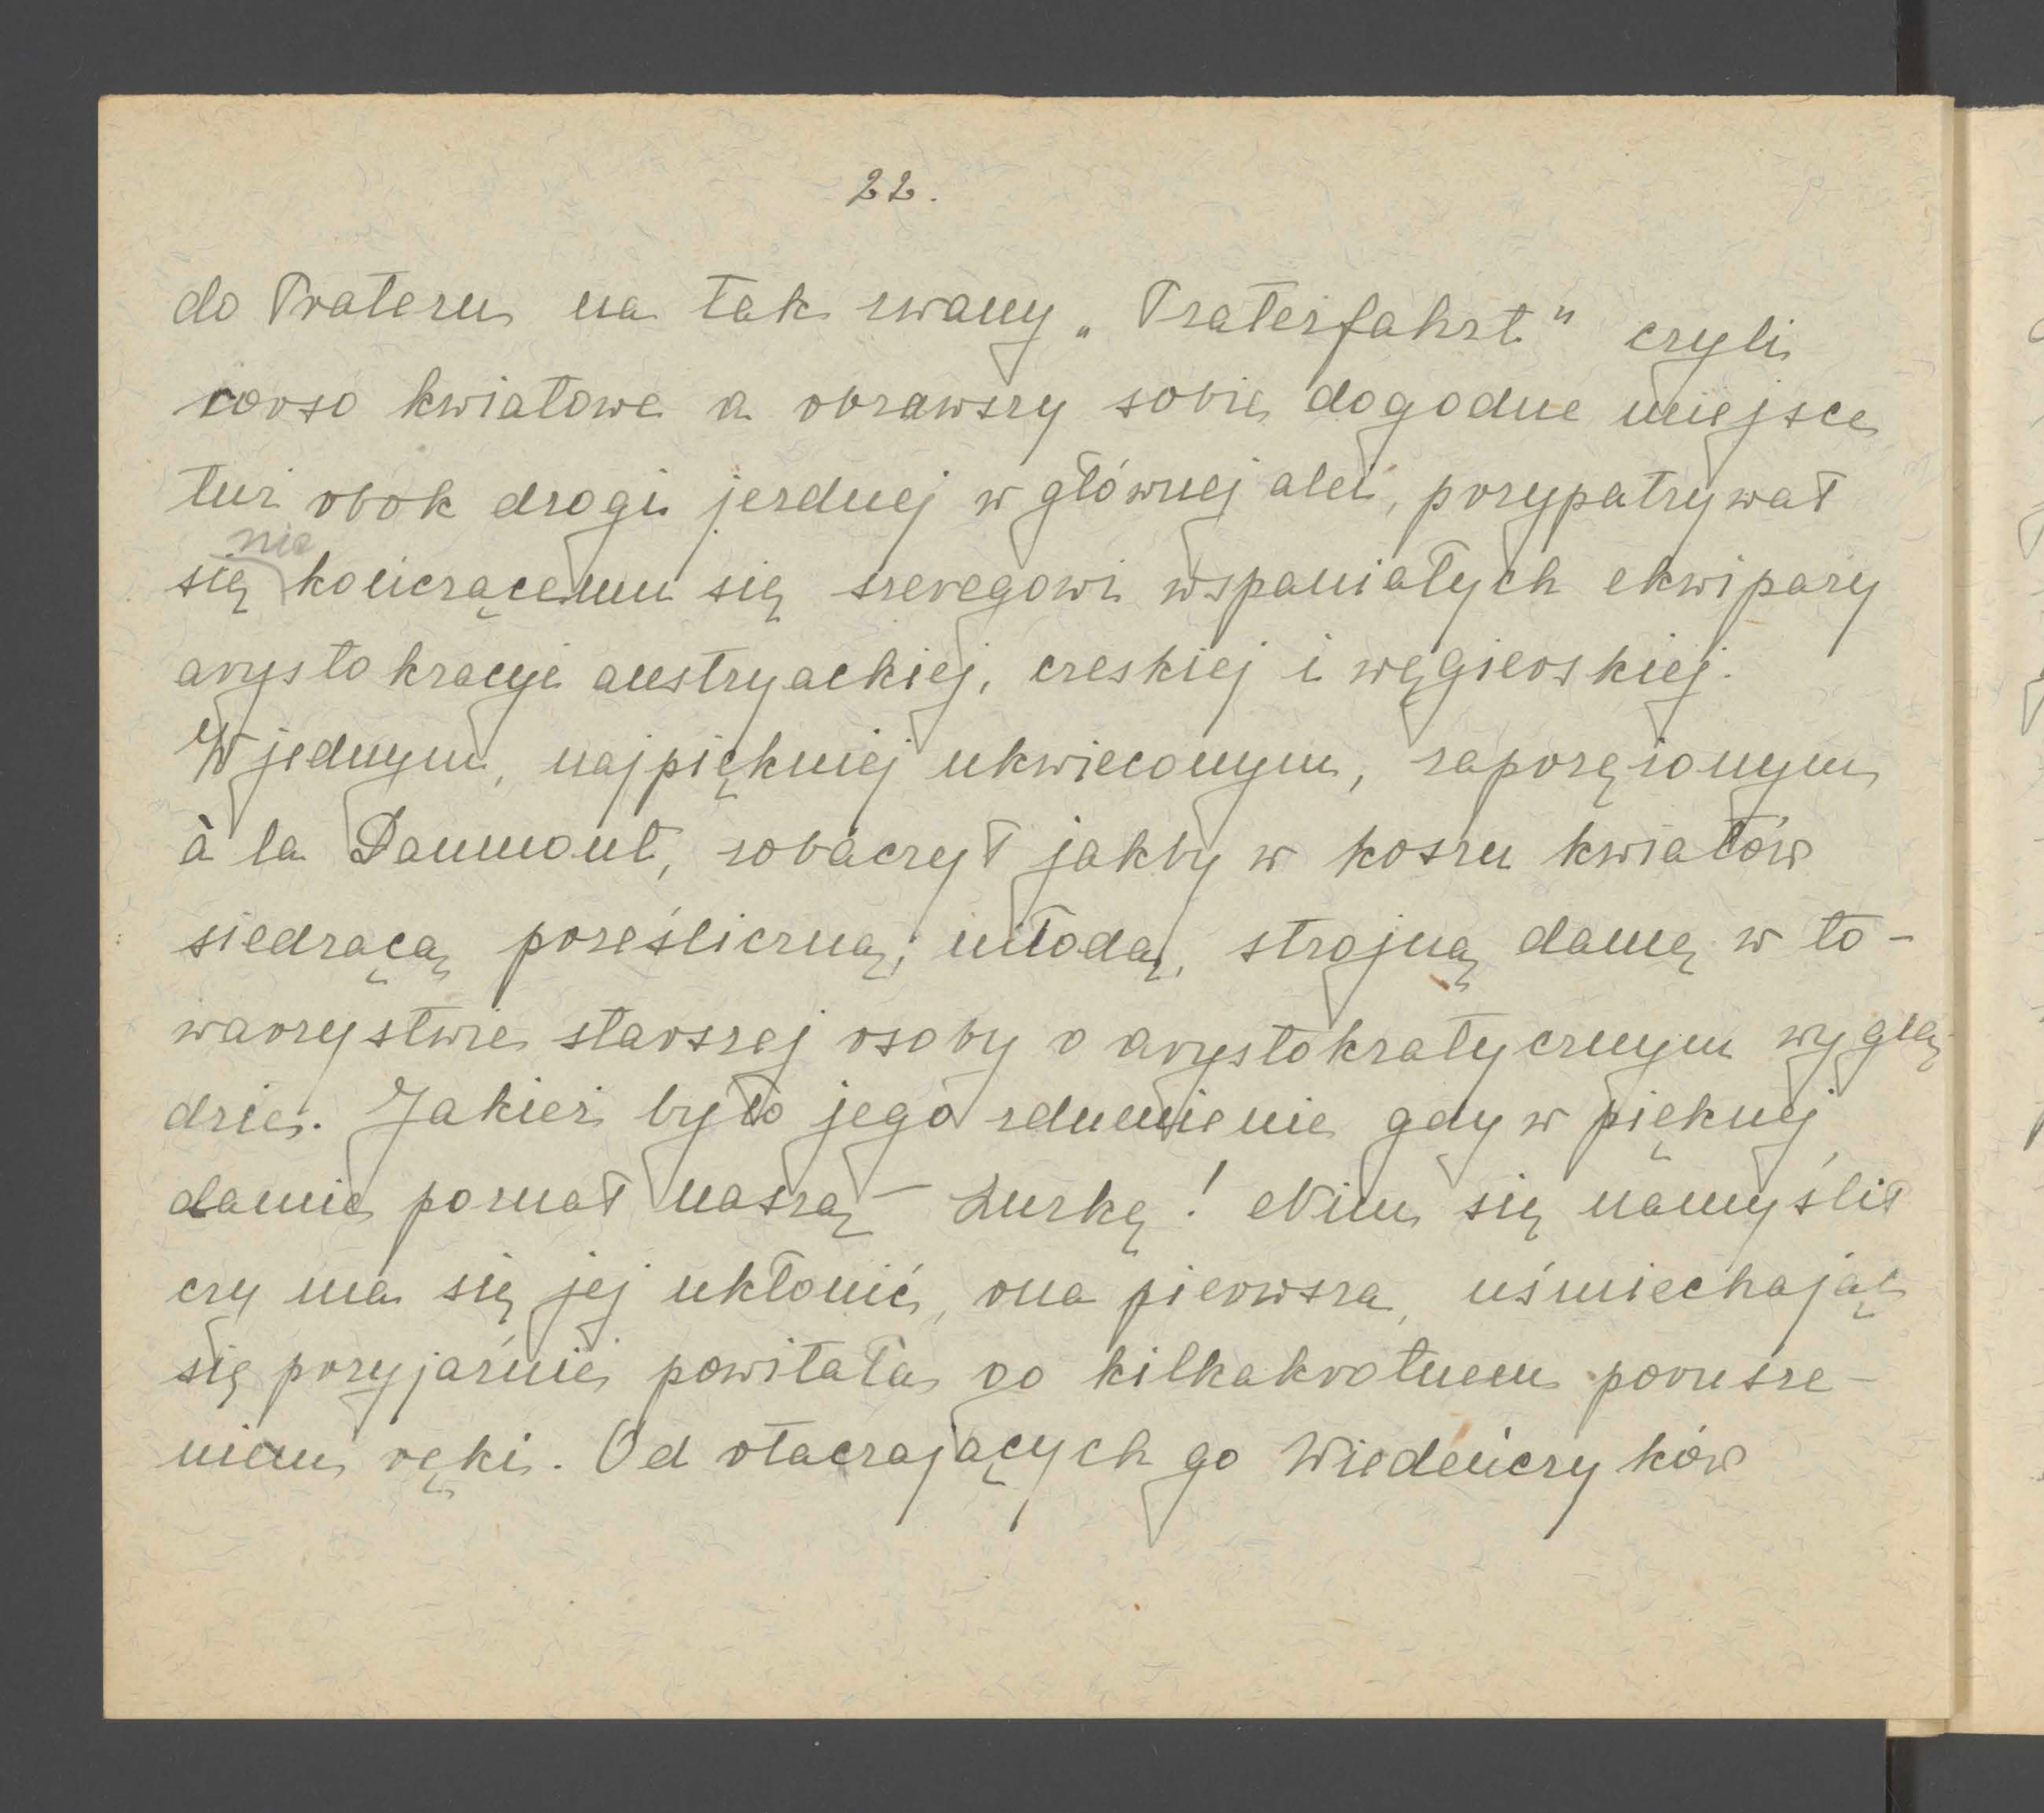 22.
do Prateru na tak zwany „Praterfahrt" czyli
corso kwiatowe a obrawszy sobie dogodne miejsce
tuż obok drogi jezdnej w głównej alei, przypatrywał
nie
się kończącemu się szeregowi wspaniałych ekwipaży
arystokracyi austryackiej, czeskiej i węgierskiej.
W jednym, najpiękniej ukwieconym, zaprzężonym
à la Daumont, zobaczył jakby w koszu kwiatów
siedzącą prześliczną, młodą, strojną damę w to-
warzystwie starszej osoby o arystokratycznym wyglą-
dzie. Jakież było jego zdumienie gdy w pięknej
damie poznał naszą – Luzkę! Nim się namyślił
czy ma się jej ukłonić, ona pierwsza, uśmiechając
się przyjaźnie, powitała go kilkakrotnem porusze-
niem ręki. Od otaczających go Wiedeńczyków